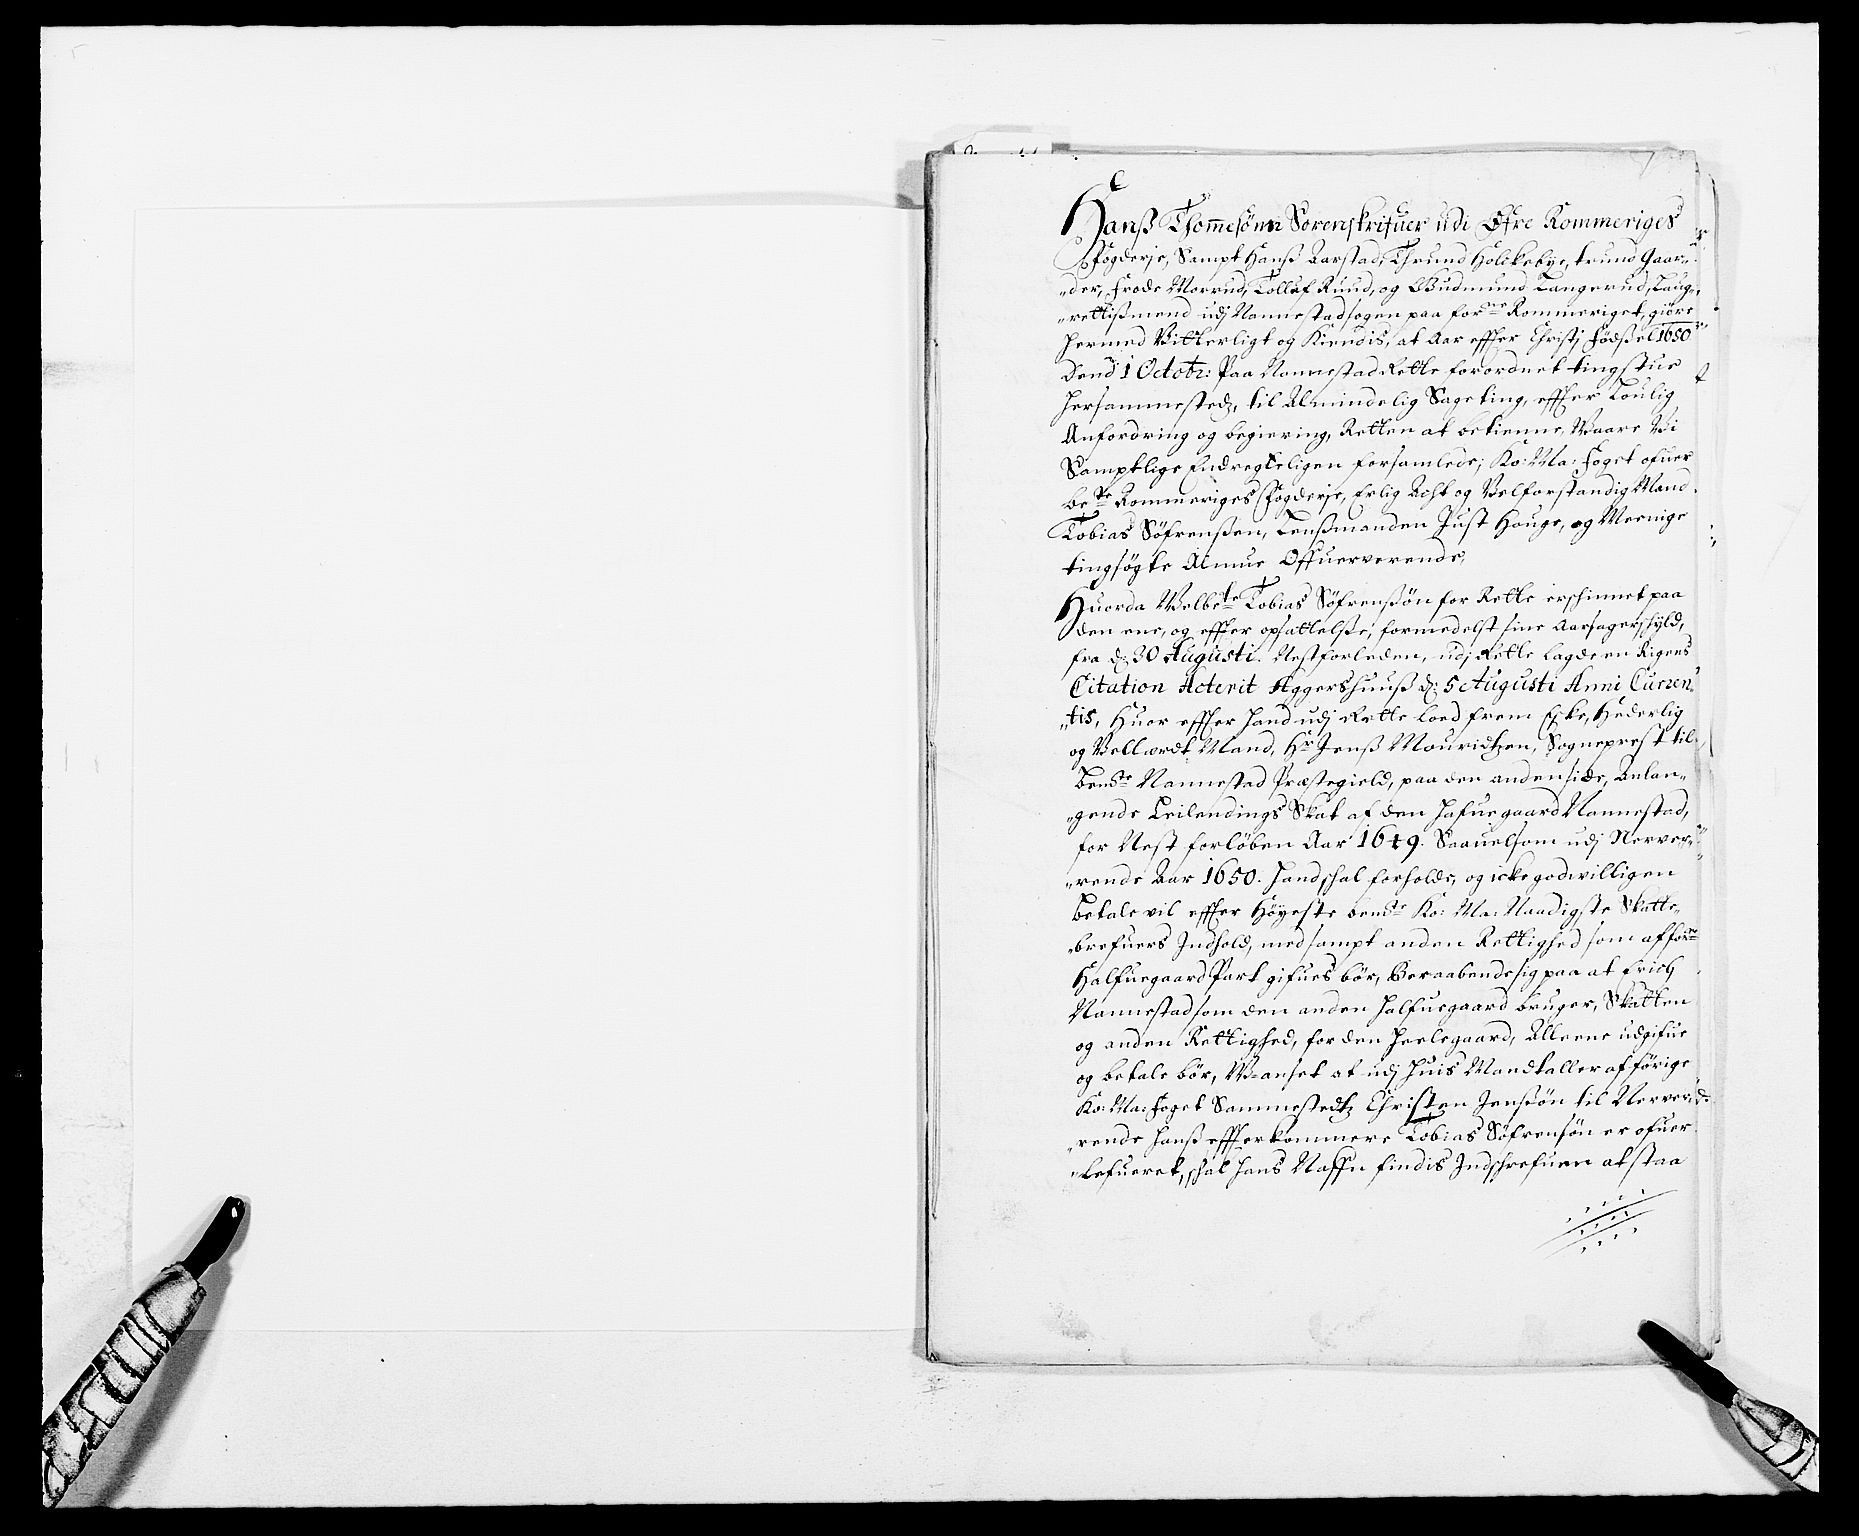 Hanß Thomesönn Sorenskrifuer udi Öfre Rommeriges
Fogderje, Sampt Hanß Aarstad, Thrund Holikebye, trund Gaar„
„der, Frode Morrud, Tolluf Ruud, og Gudmund Tangerud, Laug„
„rettißmend udj Nannestadsogen paa forne Rommeriget, giöre
hermed Vitterligt og Kiendis, at Aar effter Christj Födßel 1650
Dend 1 Octobr: Paa Nannestad Rette forordnet tingstue
hersammestedz, til Almindelig Sageting, effter Loulig
Anfordring og begiering, Retten at betienne, Waare Vi
Samptlige Endregteligen forsamlede; Ko: Ma: Foget ofuer
bete Rommeriges Fogderje, Erlig Acht og Velforstandig Mand
Tobias Söfrenßen, Lenßmanden Just Houge, og Meenige
tingsögte Almue Offuerverende,
Huorda Welbete Tobias Söfrenßön for Rette erschinnet paa
den ene, og effter opsattelße, formedelst sine Aarsager schyld,
fra d: 30 Augusti. Nestforleden, udj Rette lagde en Rigens
Citation Acterit Aggershuuß d: 5 Augusti Anni Curren„
„tis, Huor effter hand udj Rette loed frem Eske, Hederlig
og Vellærdt Mand, Hr Jenß Mouridtzen, Sogneprest til
bemte Nannestad Præstegield, paa den anden side, Anlan„
„gende Leilendings Skat af den hafuegaard Nannestad,
for Nest forlöben Aar 1649. Saauelsom udj Nerver„
„rende Aar 1650. hand schal forholde, og icke godwilligen
betale vil effter Höyeste bemte Ko: Ma: Naadigste Skatte„
„brefuers Indhold, med sampt anden Rettighed som af forne
Halfuegaard Part gifues bör, Beraabende sig paa at Erich
Nannestad som den anden halfuegaard bruger, Skatten
og anden Rettighed, for den heelegaard, Alleene udgifue
og betale bör, W-anset at udj huis Mandtaller af förige
Ko: Ma: Foget Sammestedtz Christen Jensön til Nerver„
„rende hanß effterkommere Tobias Söfrensön er ofuer
„lefueret, schal hans Naffn findis Indschrefuen at staa